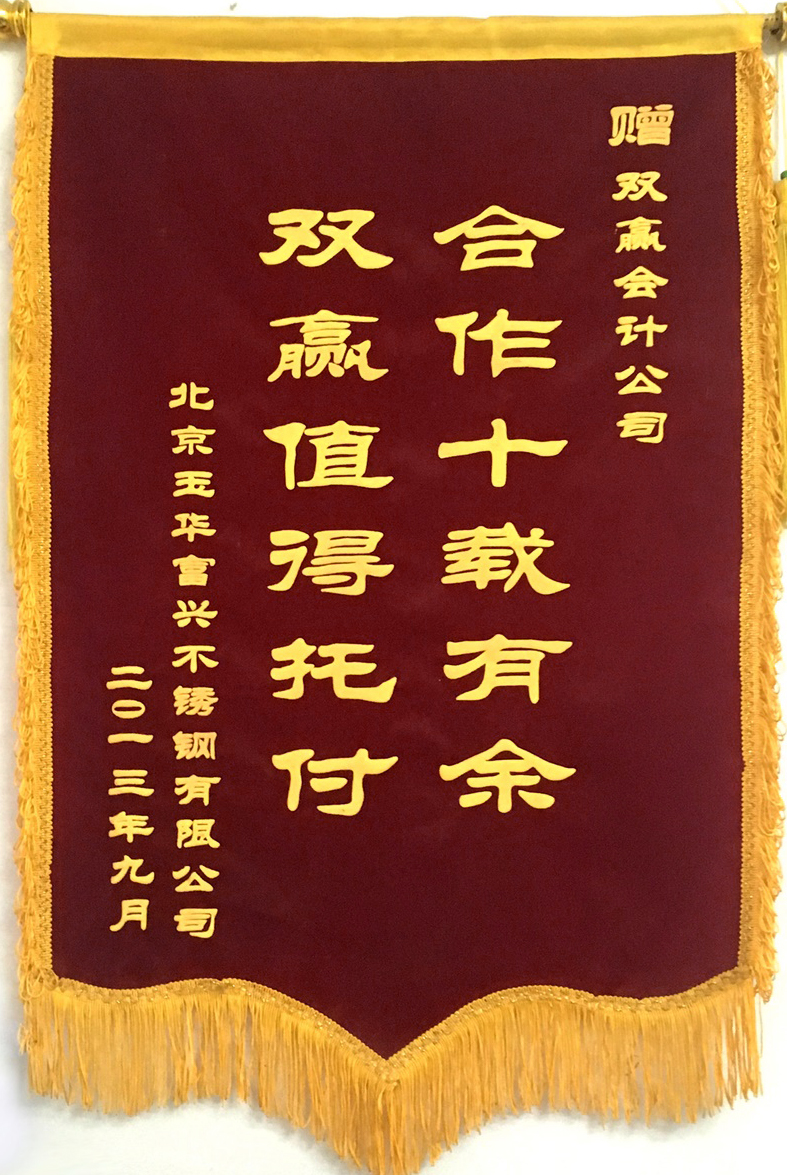 赠双赢会计公司
合作十载有余
双赢值得托付
北京玉华富兴不锈钢有限公司
二〇一三年九月